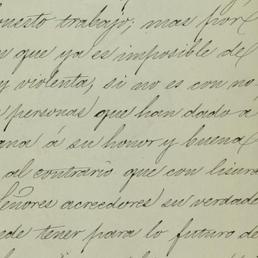 puesto trabajo; mas por
n que ya es imposible de
y violenta; si no es con no
personas que han dado á
ana á su honor y buena
al contrario que con lisura
señores acreedores su verdade
ede tener para lo futuro de